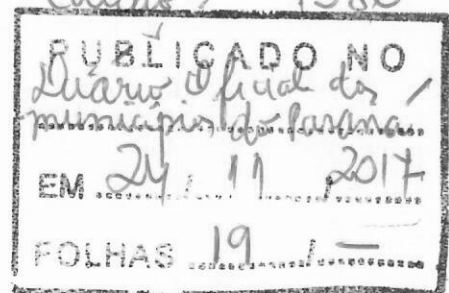 1380
PUBLICADO NO
Diário Oficial dos
municípios do Paraná
EM 24 / 11 / 2017
FOLHAS 19 / —